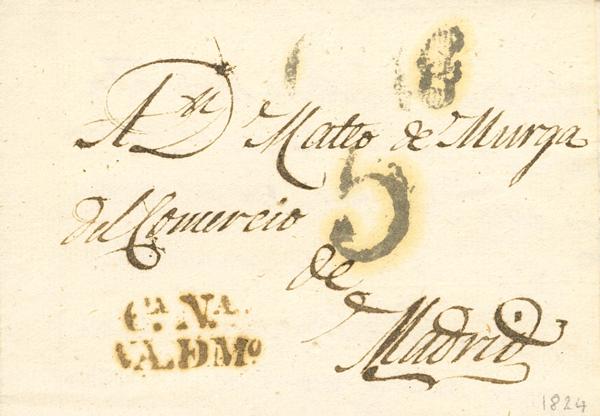 A Dⁿ Mateo de Murga
5
del Comercio
de
Madrid
Cᴬ. Nᴬ.
VALDMº
1824